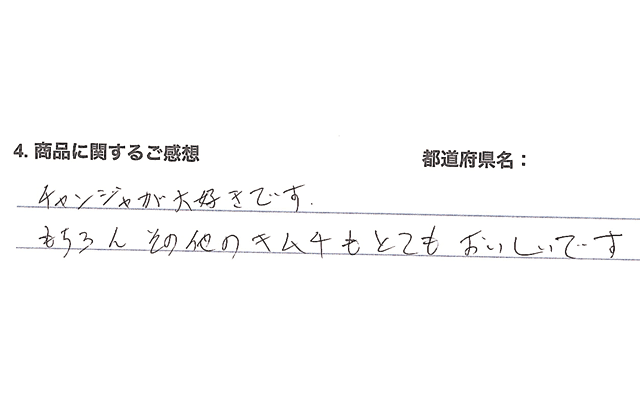 4. 商品に関するご感想
都道府県名：
チャンジャが大好きです.
もちろん その他のキムチもとても おいしいです